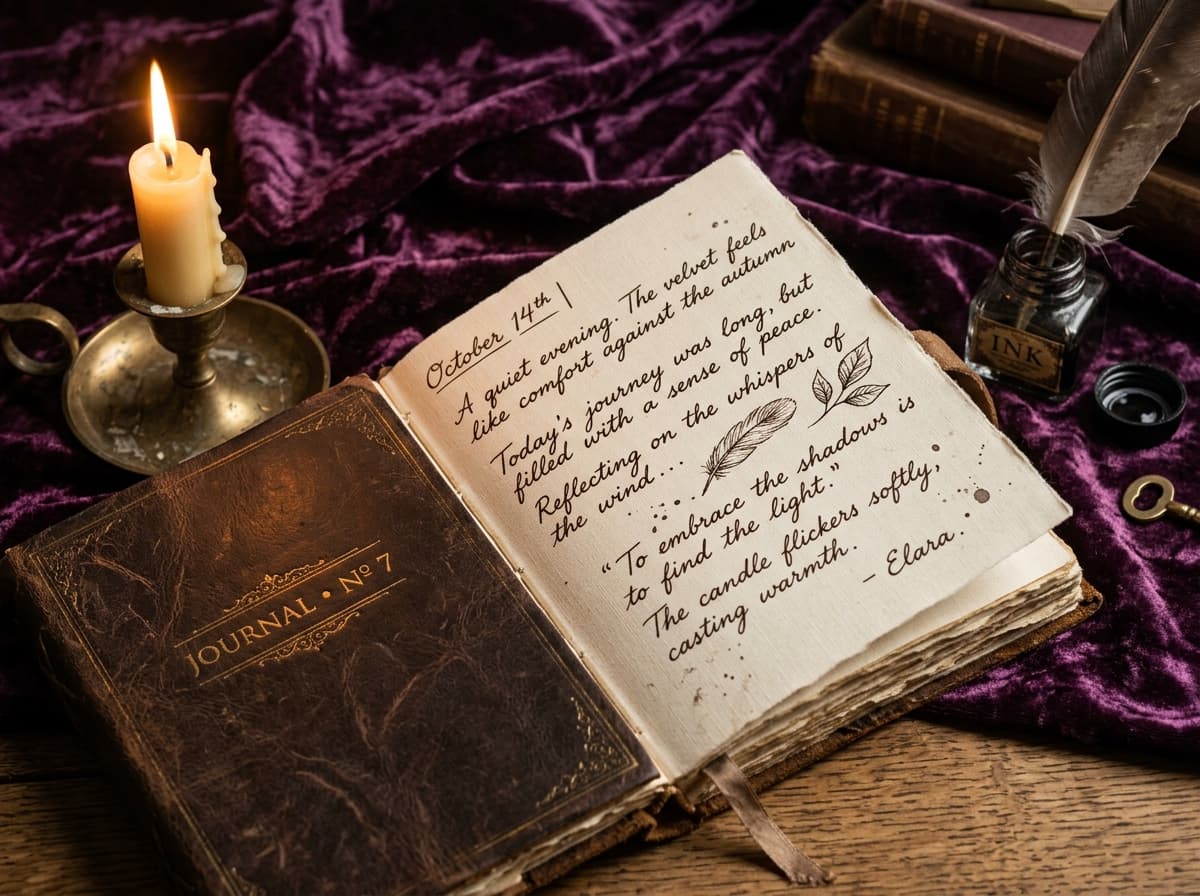 JOURNAL • Nº 7
October 14th
A quiet evening. The velvet feels
like comfort against the autumn
Today's journey was long, but
filled with a sense of peace.
Reflecting on the whispers of
the wind...
“To embrace the shadows is
to find the light.”
The candle flickers softly,
casting warmth.
– Elara.
INK